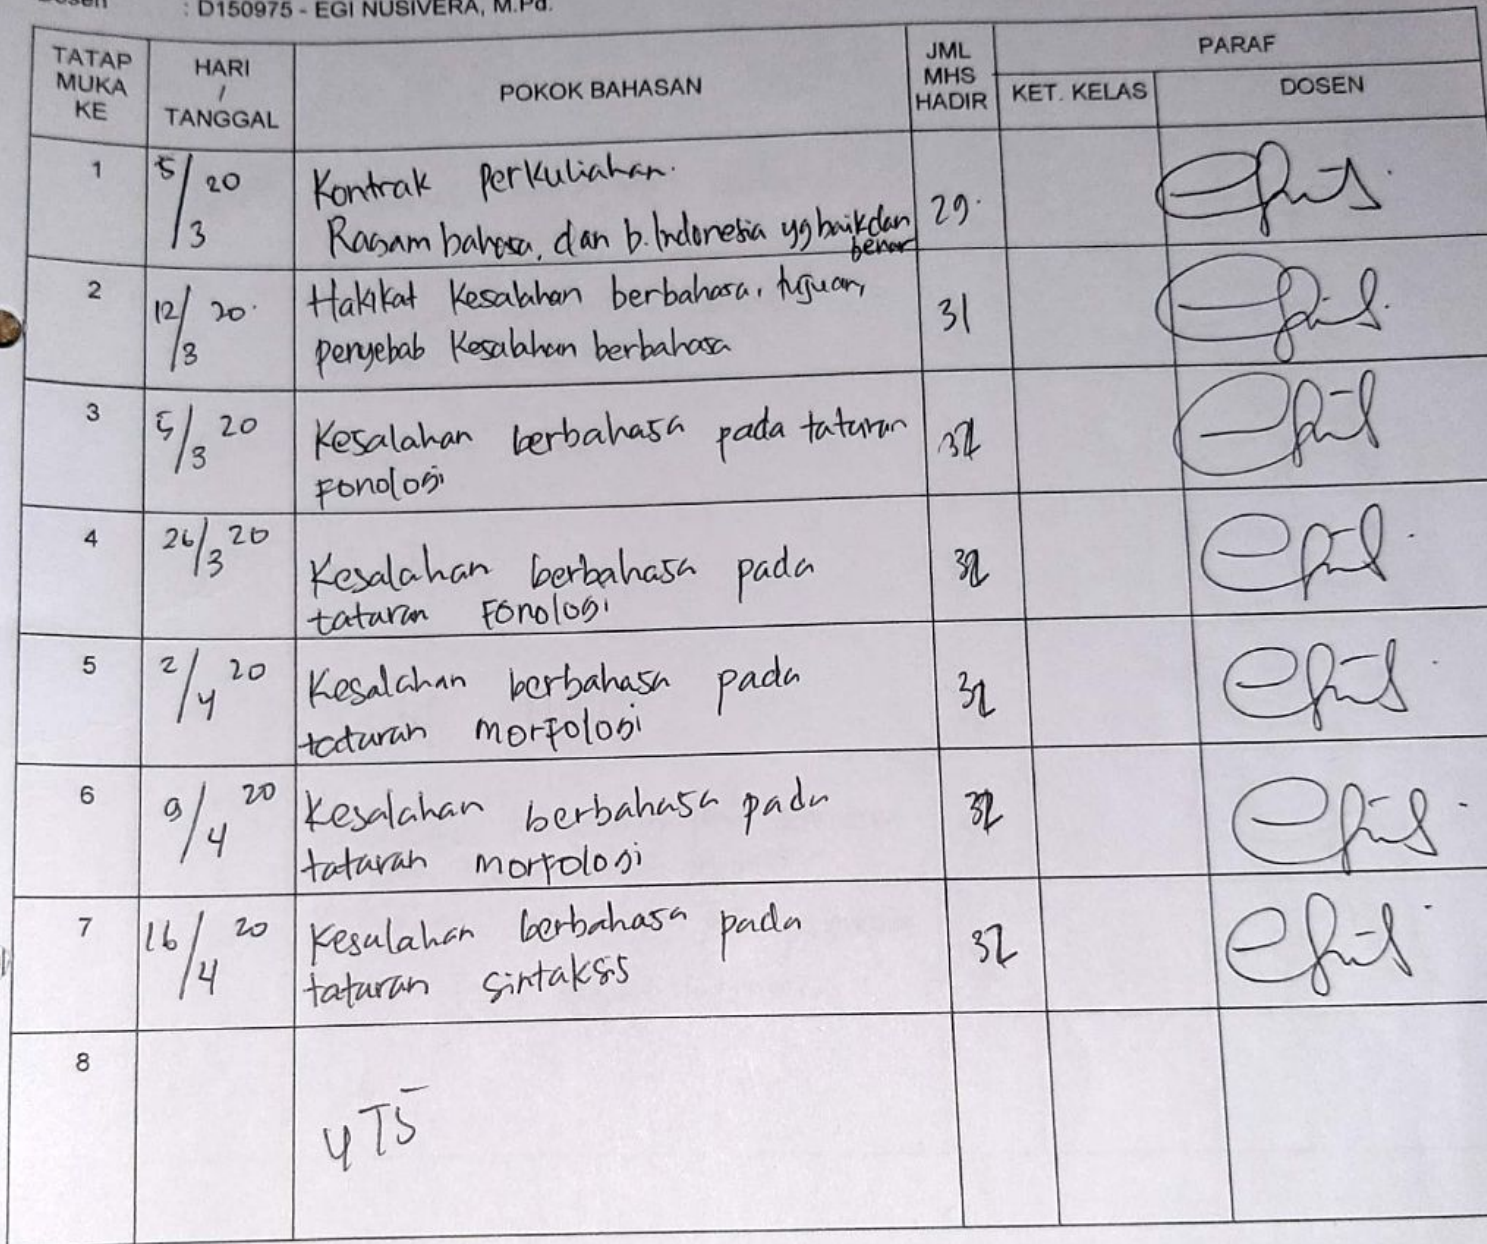 : D150975 - EGI NUSIVERA, M.Pd.
TATAP MUKA KE
HARI / TANGGAL
POKOK BAHASAN
JML MHS HADIR
PARAF
KET. KELAS
DOSEN
1
5/3 20
Kontrak Perkuliahan.
Ragam bahasa, dan b. Indonesia yg baik dan
benar
29.
2
12/3 20.
Hakikat Kesalahan berbahasa, tujuan,
penyebab Kesalahan berbahasa
31
3
5/3 20
Kesalahan berbahasa pada tataran
Fonologi
32
4
26/3 20
Kesalahan berbahasa pada
tataran Fonologi
32
5
2/4 20
Kesalahan berbahasa pada
tataran morfologi
32
6
9/4 20
Kesalahan berbahasa pada
tataran morfologi
32
7
16/4 20
Kesalahan berbahasa pada
tataran sintaksis
32
8
UTS